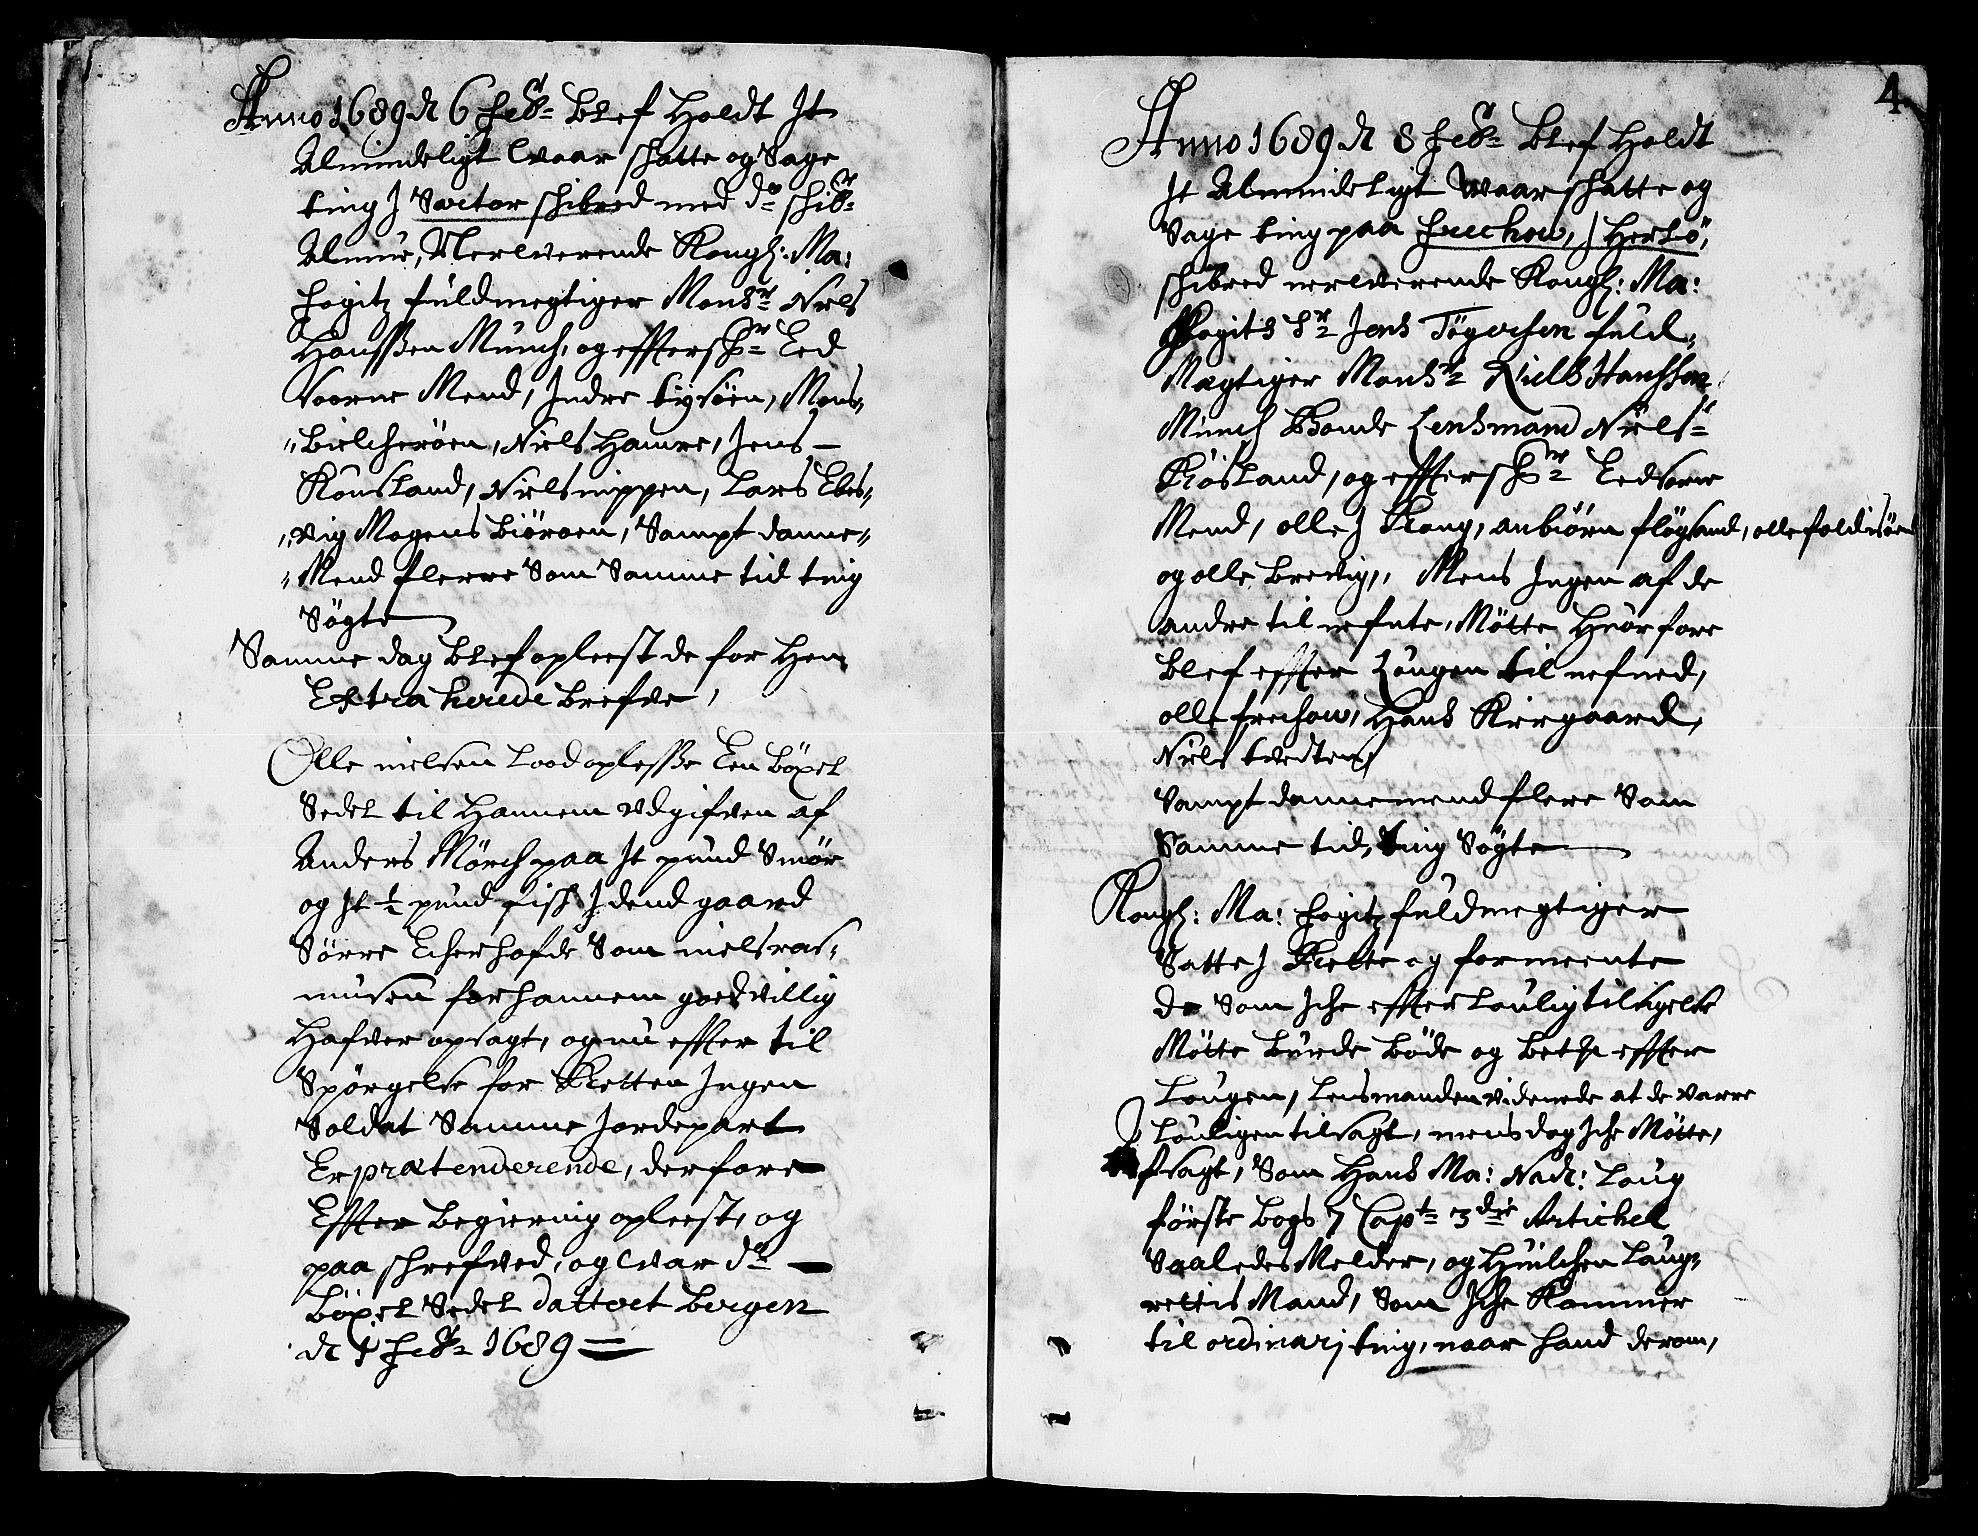 Anno 1689 d 6 febr: blef holdt It
Almindeligt Vaar schatte og Sage
ting J Sartor schibred med do schibr:
Almue, Nerverende Kongl: Ma:
fogitz fuldmegtiger Monsr Niels
Hanssen Münch, og effterschr: Eed
Soorne Mend, Indre tysöen, Mons
bielcheröen, Niels Hamre, Jens
Kousland, Niels nippen, Lars Ebes,,
,,vig Mogens biöroen, Sampt danne,,
,,Mend flerre Som Samme tid ting
Sögte
Samme dag blef opleest de for hen
Extraherede brefve,
Olle nielsen lood oplesse Een böxel
Sedel til hannem udgifven af
Anders Mörch paa It pund Smör
og It ½ pund fisk J dend gaard
Sörre Echerhofde Som niels ras,,
musen for hannem goedvillig
Hafver opsagt, og nu effter til
Spörgelse for Retten Ingen
Soldat Samme Jordepart
Er prætenderende, derfore
Effter begiering opleest, og
paa schrefved, og var do
böxel Sedel dattert bergen
d 1 febr: 1689
4
Anno 1689 d 8 febr: blef holdt
It Almindeligt Waar schatte og
Sage ting paa frechow, J Herlö,
schibred nerverende Kongl: Ma:
fogits Sr Jens Tögersen fuld,,
Mægtiger Monsr Niells Hanssen
Münch Bonde Lensmand Niels
Röösland, og efftersch: Eedsorne
Mend, olle J Kong, anbiörn flögsand, olle foldisöen
og olle brevig,, Mens Ingen af de
andre til nefnte, Mötte Huorfore
blef effter Lougen til nefned,
olle frechow, Hans Kirgaard,
Niels tvedten
Sampt dannemend flere Som
Samme tid, ting Sögte
Kongl: Ma: fogitz fuldmegtiger
Satte J Rette og formeente
de Som Iche effter louligtilsigelse
Mötte burde böde og bethe effter
Lougen, Lensmanden vidnede at de varre
louligen tilsagt, mens dog Iche Mötte,
sagt, Som Hans Ma: Nadr: Loug
förste bogs 7 Capt: 3die Artichel
Saaledes Melder, og Huilchen Laug,,
rettis Mand, Som Iche Kommer
til ordinarj ting, naar hand derom,